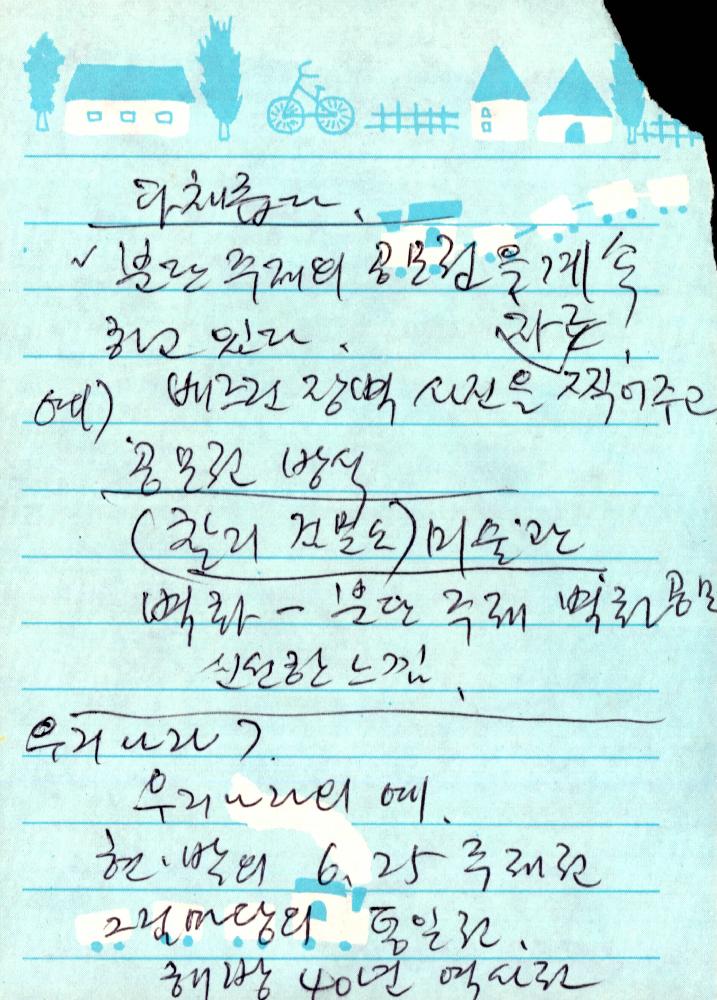 다채롭다.
✓ 분단 주제의 공모전을 계속
하고 있다. 자료,
예) 베르린 장벽 사진을 찍어주고
공모전 방식
(찰리 검문소) 미술관
벽화 - 분단 주제 벽화 공모
신선한 느낌.
우리나라?
우리나라의 예.
현·발의 6.25 주제전
그림마당의 통일전.
해방 40년 역사전